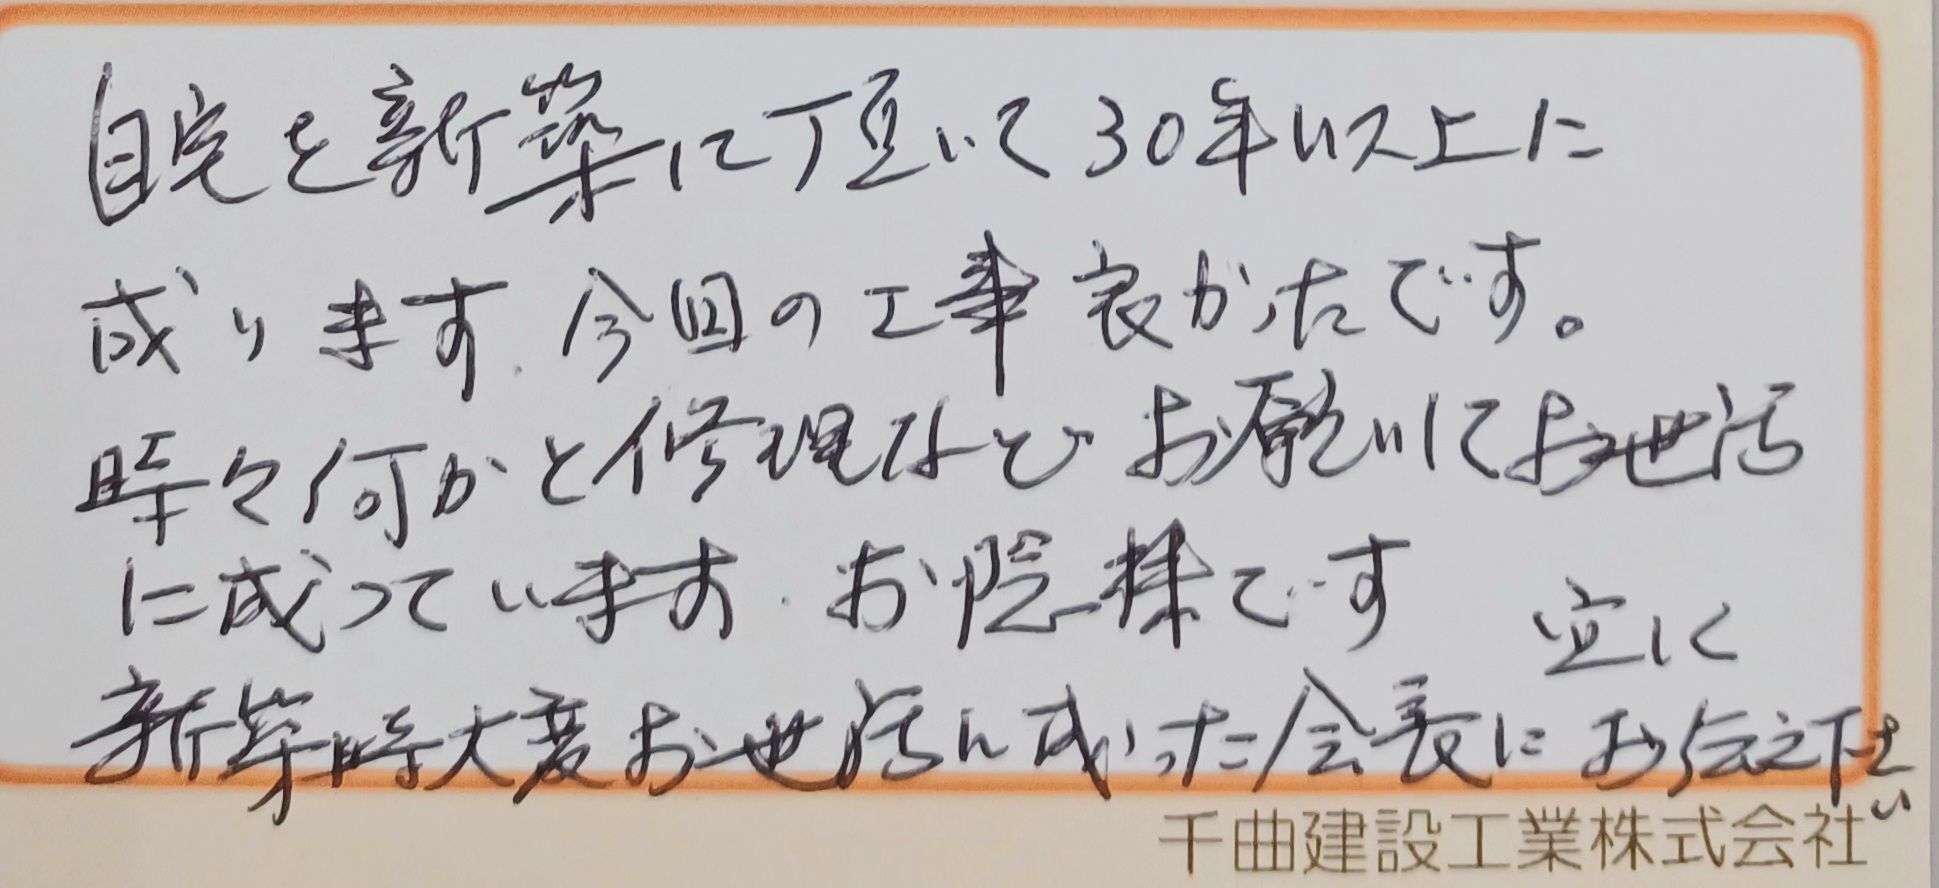 自宅を新築に頂いて30年以上に
成ります.今回の工事良かったです。
時々何かと修理などお願いにてお世話
に成っています.お陰様です
新築時大変お世話に成った会長に宜しくお伝え下さい
千曲建設工業株式会社